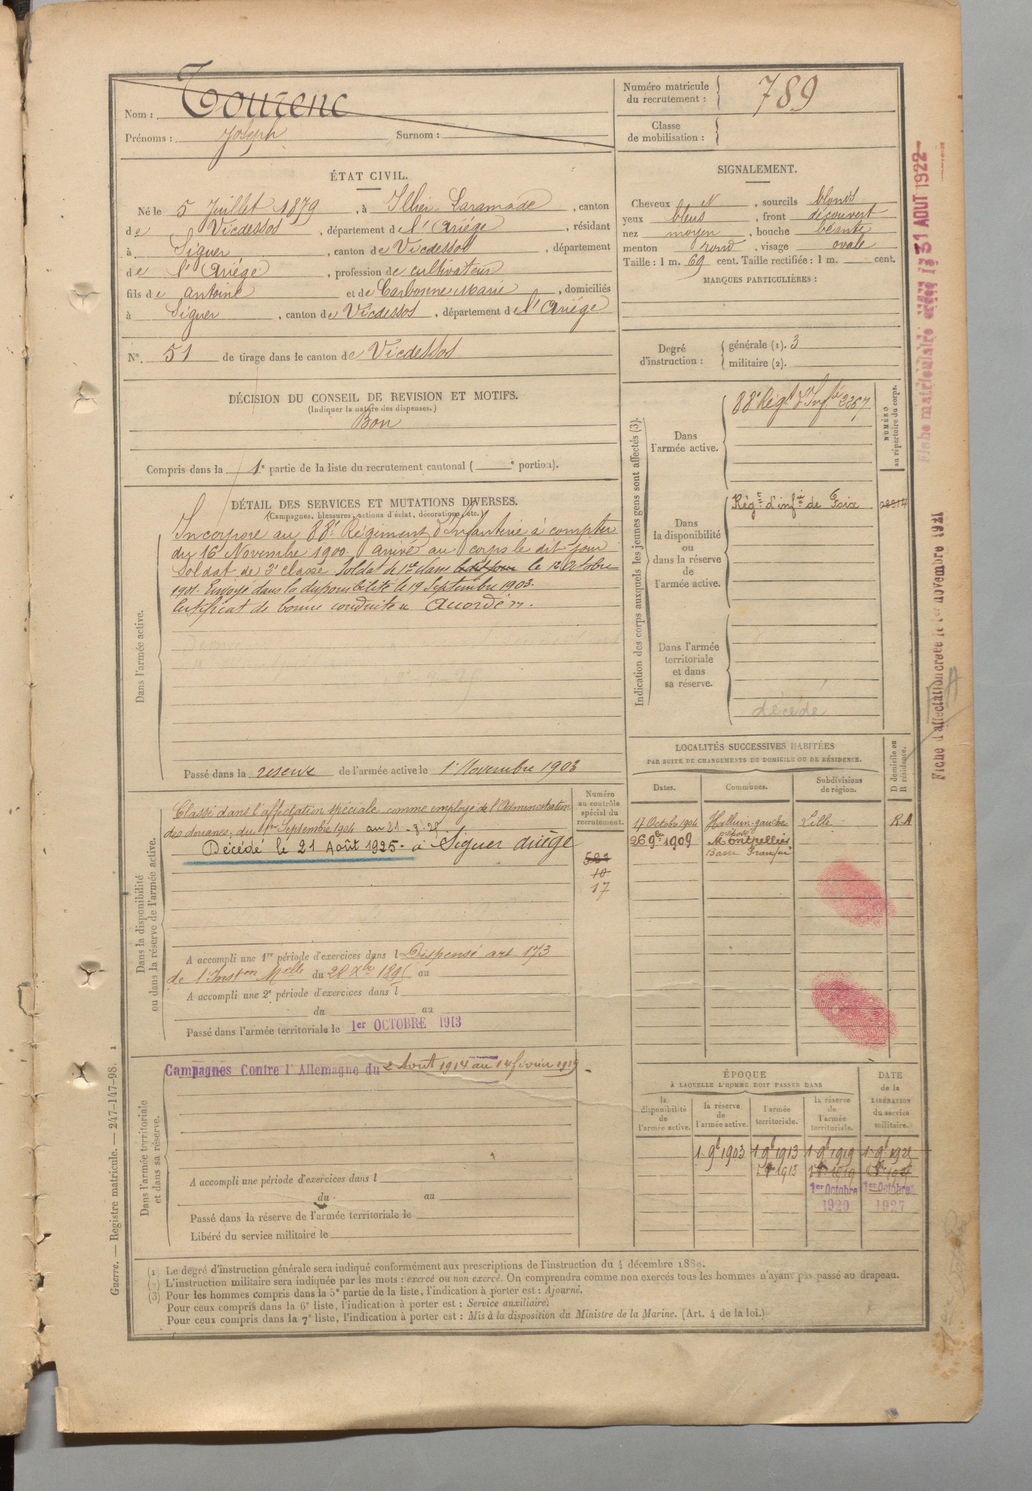 Nom : Tourenc
Prénoms : Joseph Surnom :
Numéro matricule du recrutement : 789
Classe de mobilisation :
ÉTAT CIVIL.
Né le 5 Juillet 1879, à Illier Laramade, canton
de Vicdessos, département de l'Ariége, résidant
à Siguer, canton de Vicdessos, département
de l'Ariége, profession de cultivateur
fils de Antoine et de Carbonne Marie, domiciliés
à Siguer, canton de Vicdessos, département de l'Ariége
N° 51 de tirage dans le canton de Vicdessos
SIGNALEMENT.
Cheveux N, sourcils blonds
yeux bleus, front découvert
nez moyen, bouche béante
menton rond, visage ovale
Taille : 1 m. 69 cent. Taille rectifiée : 1 m. cent.
MARQUES PARTICULIÈRES :
Degré d'instruction : générale (1). 3
militaire (2).
DÉCISION DU CONSEIL DE REVISION ET MOTIFS.
(Indiquer la nature des dispenses.)
Bon
Compris dans la 1e partie de la liste du recrutement cantonal ( e portion).
DÉTAIL DES SERVICES ET MUTATIONS DIVERSES.
(Campagnes, blessures, actions d'éclat, décorations, etc.)
Dans l'armée active.
Incorporé au 88e Régiment d'Infanterie à compter
du 16 Novembre 1900 arrivé au corps le dit jour
Soldat de 2e classe Soldat de 1re classe le 12 Octobre
1901. Envoyé dans la disponibilité le 19 Septembre 1903.
Certificat de bonne conduite " Accordé ".
Passé dans la réserve de l'armée active le 1 Novembre 1903
Indication des corps auxquels les jeunes gens sont affectés (3).
NUMÉRO au répertoire du corps.
Dans l'armée active.
88e Régt d'Infie
Dans la disponibilité ou dans la réserve de l'armée active.
Régt d'infie de Foix
Dans l'armée territoriale et dans sa réserve.
décédé
Dans la disponibilité ou dans la réserve de l'armée active.
Numéro au contrôle spécial du recrutement.
Classé dans l'affectation spéciale comme employé de l'Administration
des douanes, du 1er Septembre 1904
Décédé le 21 Août 1925. à Siguer ariège
10
17
A accompli une 1re période d'exercices dans l Dispensé art 173
de l'Inston Melle du 28 Xbre 1895 au
A accompli une 2e période d'exercices dans l
du au
Passé dans l'armée territoriale le 1er OCTOBRE 1913
LOCALITÉS SUCCESSIVES HABITÉES
PAR SUITE DE CHANGEMENTS DE DOMICILE OU DE RÉSIDENCE.
Dates. Communes. Subdivisions de région. D domicile ou R résidence.
17 Octobre 1904 Lille RA
26 9bre 1909 Montpellier
Dans l'armée territoriale et dans sa réserve.
Campagnes Contre l'Allemagne du 2 Aout 1914 au 14 février 1919
A accompli une période d'exercices dans l
du au
Passé dans la réserve de l'armée territoriale le
Libéré du service militaire le
ÉPOQUE
À LAQUELLE L'HOMME DOIT PASSER DANS
la disponibilité de l'armée active. la réserve de l'armée active. l'armée territoriale. la réserve de l'armée territoriale. DATE de la LIBÉRATION du service militaire.
1 9bre 1903 1 9bre 1913 1 9bre 1919
1913 1919
1er Octobre 1er Octobre
1920 1927
(1) Le degré d'instruction générale sera indiqué conformément aux prescriptions de l'instruction du 4 décembre 1889.
(2) L'instruction militaire sera indiquée par les mots : exercé ou non exercé. On comprendra comme non exercés tous les hommes n'ayant pas passé au drapeau.
(3) Pour les hommes compris dans la 5e partie de la liste, l'indication à porter est : Ajourné.
Pour ceux compris dans la 6e liste, l'indication à porter est : Service auxiliaire.
Pour ceux compris dans la 7e liste, l'indication à porter est : Mis à la disposition du Ministre de la Marine. (Art. 4 de la loi.)
Guerre. — Registre matricule. — 247-147-98.
Fiche matriculaire créée le 31 AOUT 1922
Fiche d'affectation créée le 1er novembre 1921